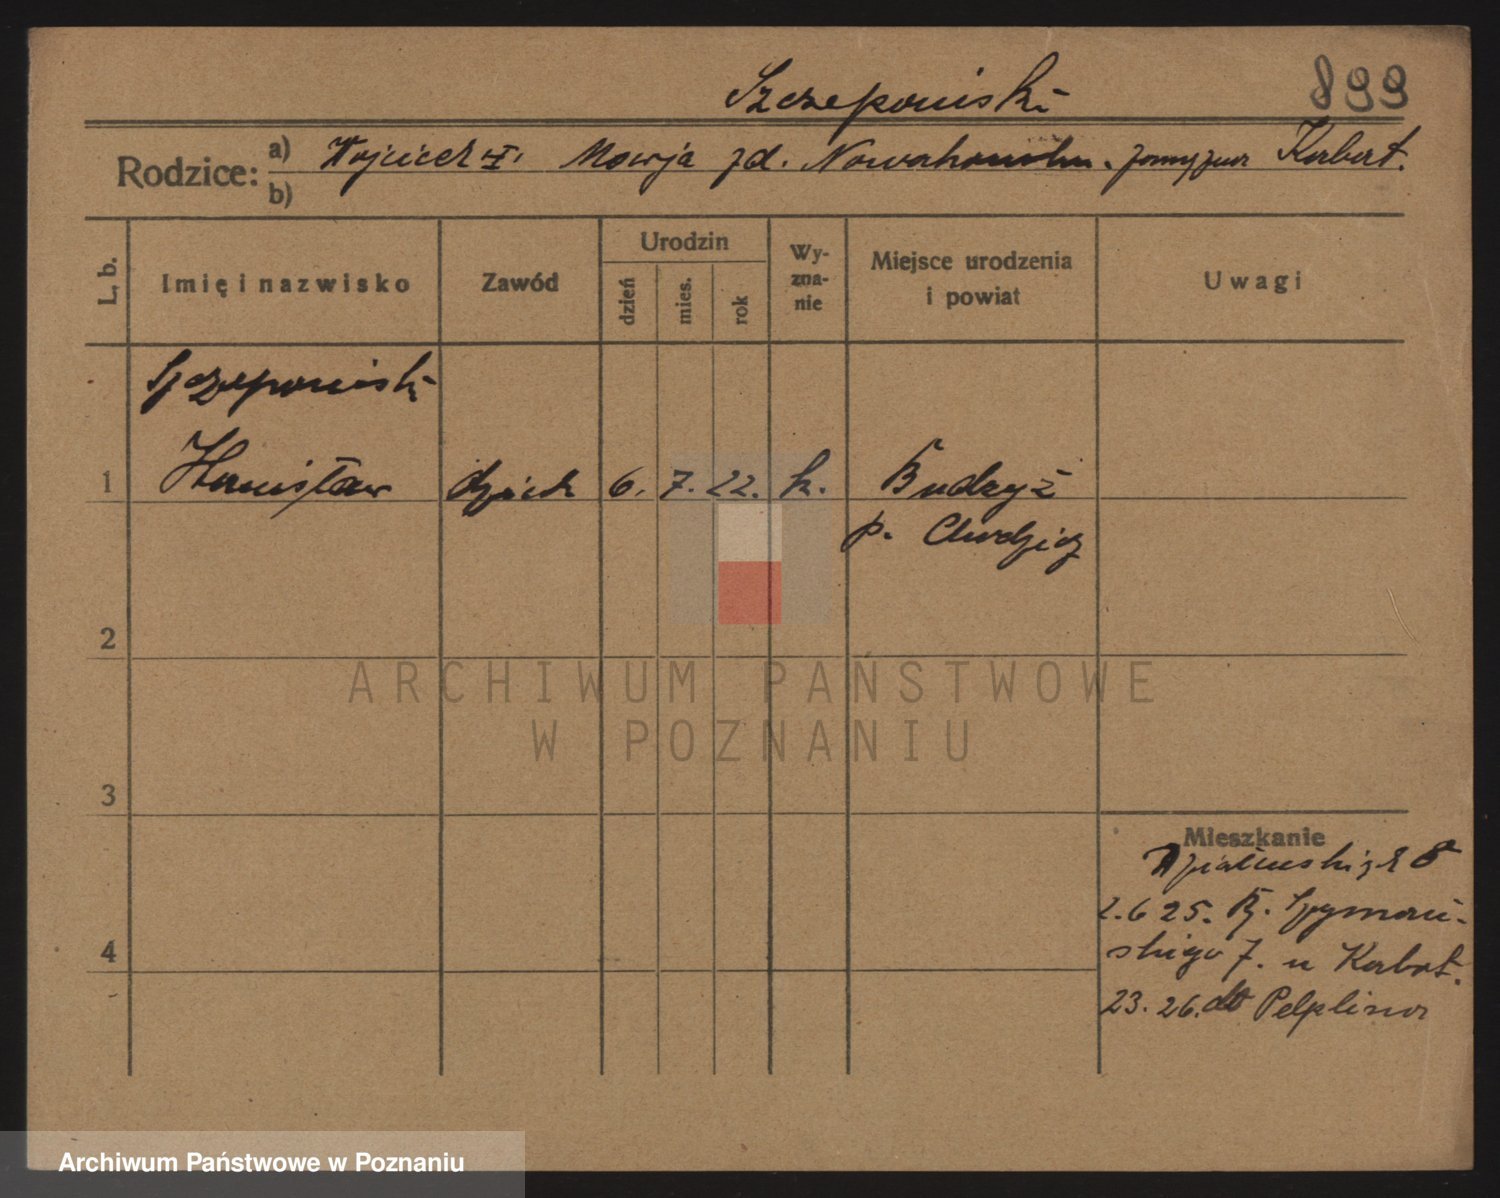 Szczeponiski
899
Rodzice: a) Wojciech Marja zd. Nowakowska. Kerbert.
b)
L. b.
Imię i nazwisko
Zawód
Urodzin
dzień
mies.
rok
Wy-
zna-
nie
Miejsce urodzenia
i powiat
Uwagi
Szczeponiski
1 Stanisław dziecko 6. 7. 22. k. Budzyń
p. Chodzież
2
3
Mieszkanie
Działyńskig. 8
2.6 25. Szymań-
skiego 7. u Kerbert.
4
23. 26. do Pelplina
ARCHIWUM PAŃSTWOWE
W POZNANIU
Archiwum Państwowe w Poznaniu